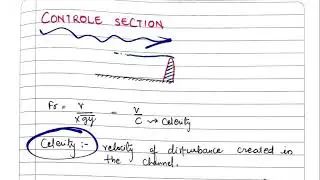 CONTROLE SECTION
Fr = V / √gy = V / C → Celerity
Celerity :- velocity of disturbance created in
the channel.